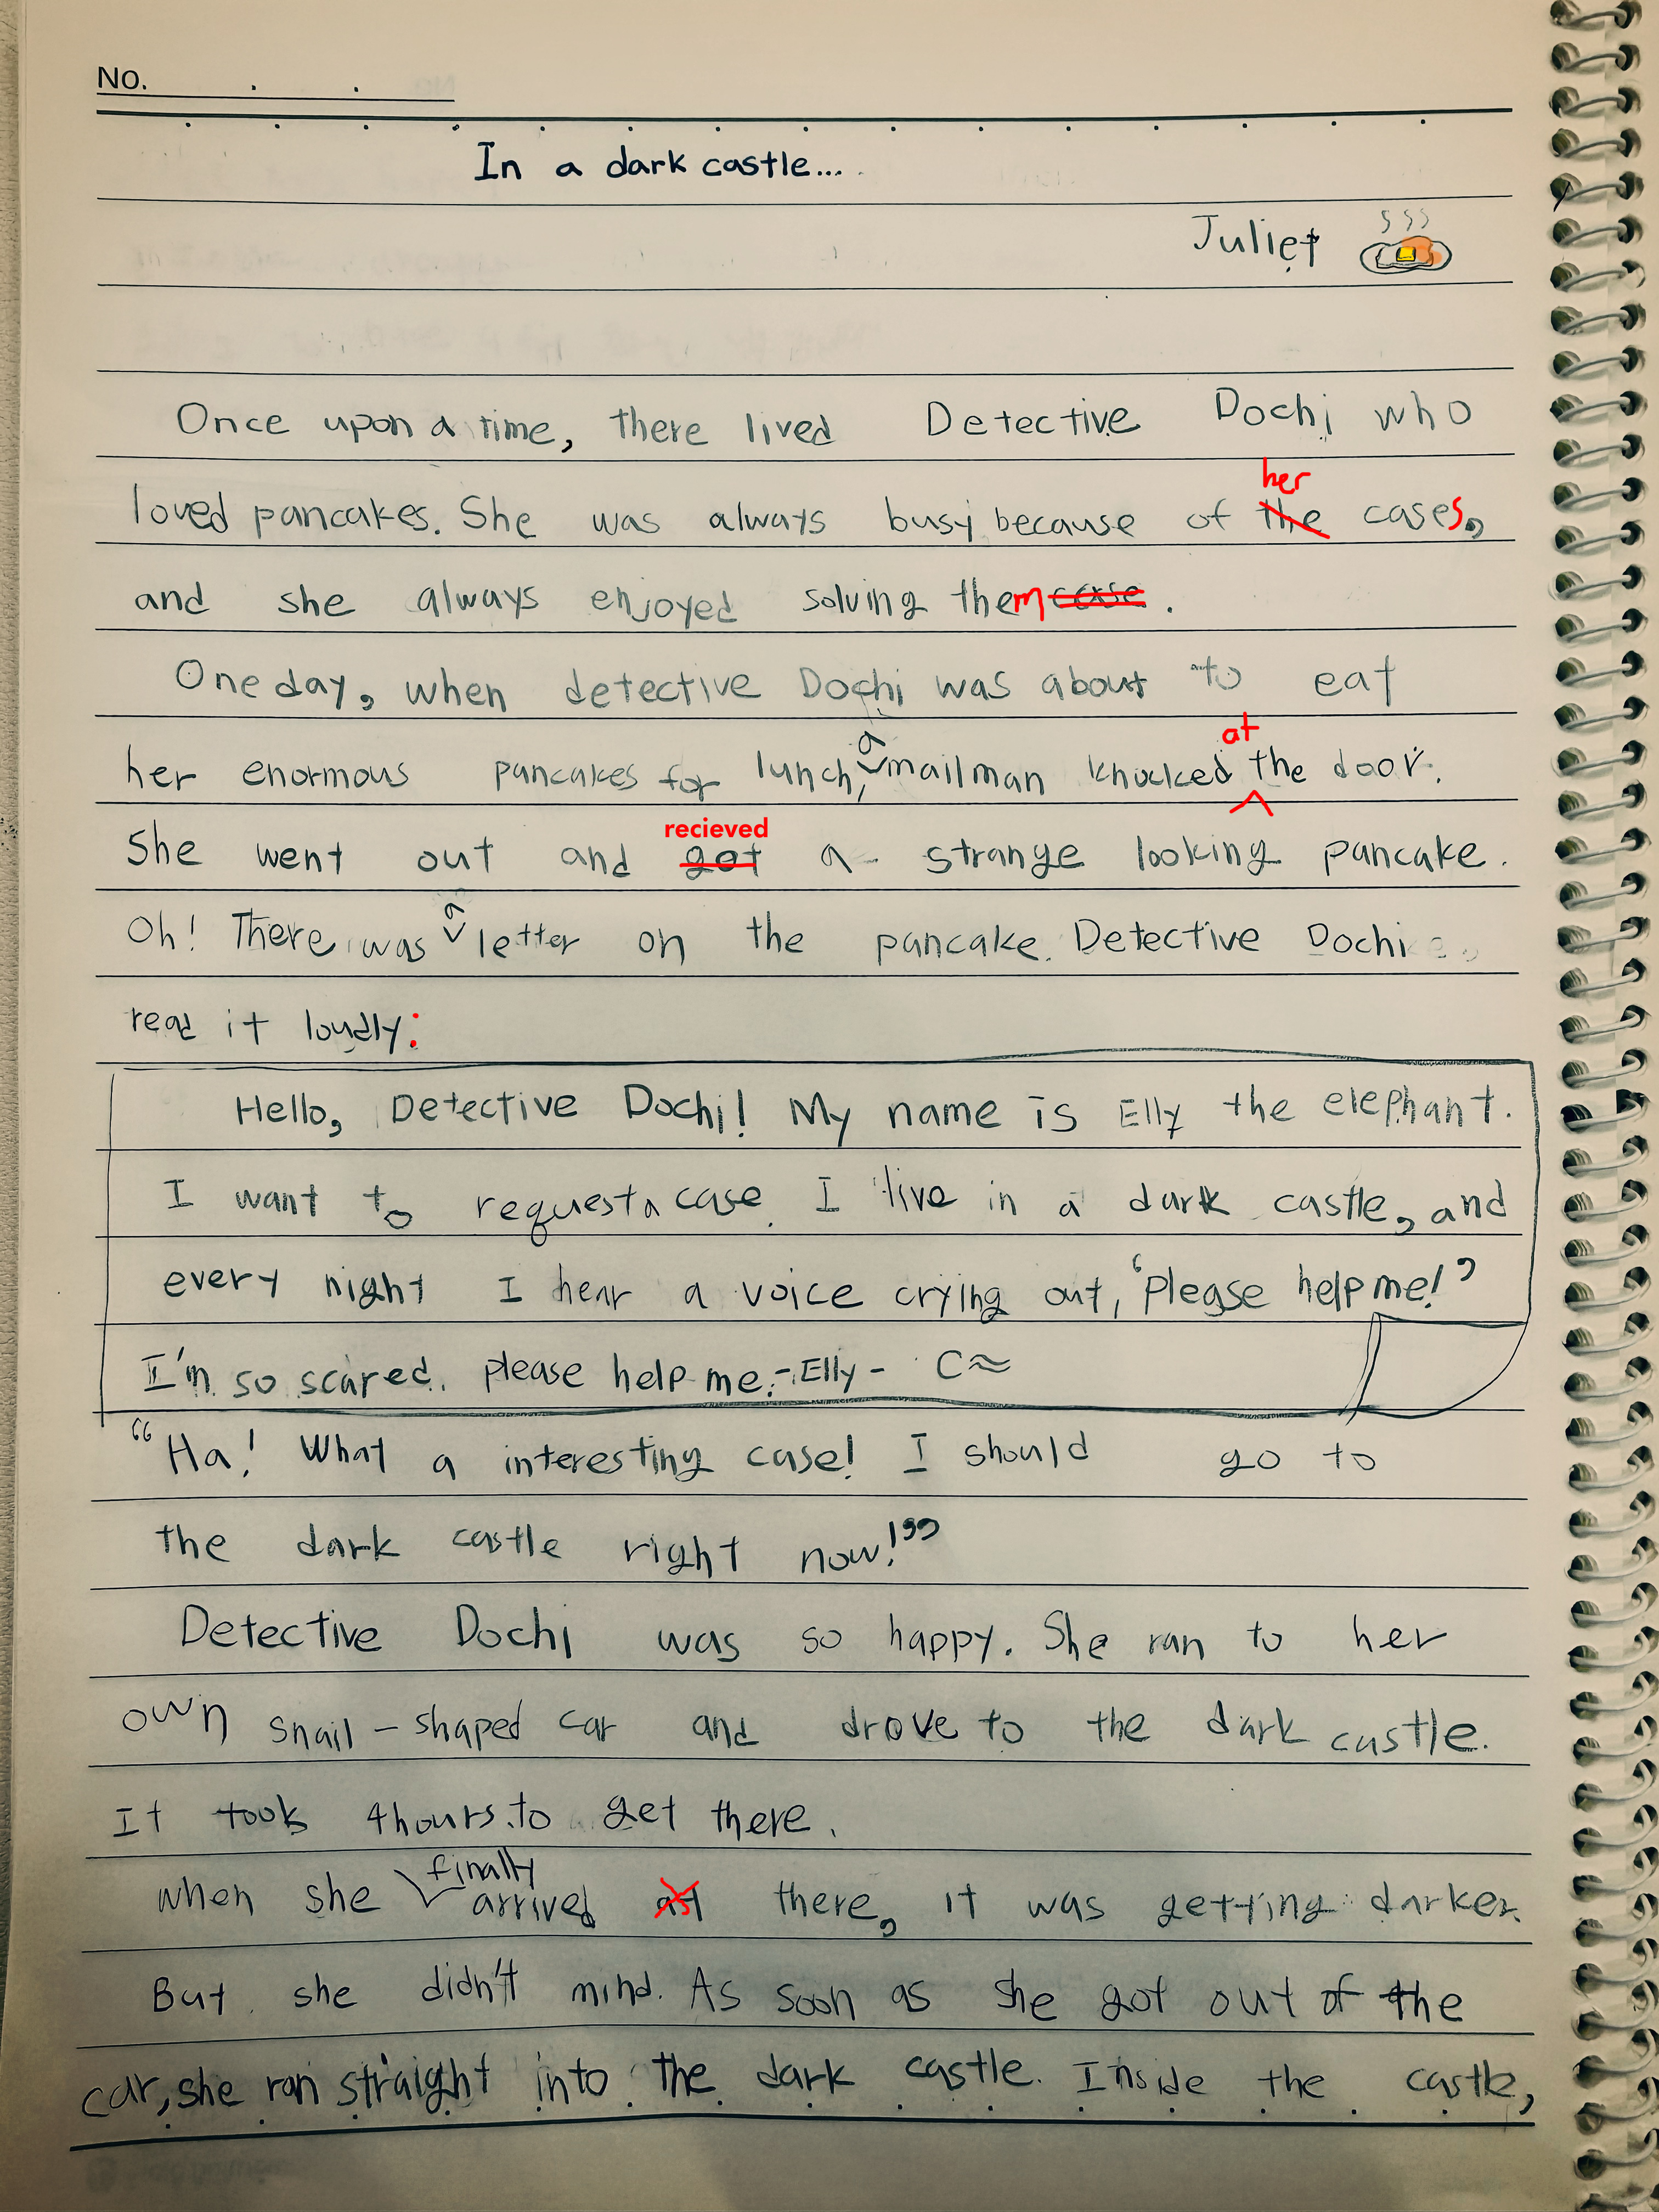 No. . .
In a dark castle...
Juliet
Once upon a time, there lived Detective Dochi who
her
loved pancakes. She was always busy because of the cases,
and she always enjoyed solving them case.
One day, when detective Dochi was about to eat
a at
her enormous pancakes for lunch, mailman knocked the door.
recieved
She went out and got a strange looking pancake.
a
Oh! There was letter on the pancake. Detective Dochi
read it loudly:
Hello, Detective Dochi! My name is Elly the elephant.
I want to request a case. I live in a dark castle, and
every night I hear a voice crying out, 'Please help me!'
I'm so scared. please help me.-Elly-
"Ha! What a interesting case! I should go to
the dark castle right now!"
Detective Dochi was so happy. She ran to her
own snail-shaped car and drove to the dark castle.
It took 4hours to get there.
finally
when she arrived at there, it was getting darker.
But she didn't mind. As soon as she got out of the
car, she ran straight into the dark castle. Inside the castle,